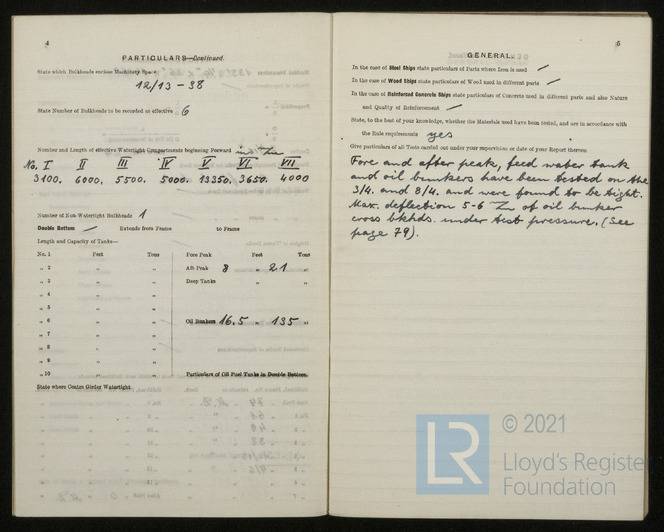 4
PARTICULARS—Continued.
State which Bulkheads enclose Machinery Space
12/13 - 38
State Number of Bulkheads to be recorded as effective 6
Number and Length of effective Watertight Compartments beginning Forward
No. I II III IV V VI VII
3100. 6000. 5500. 5000. 13350. 3650. 4000
Number of Non-Watertight Bulkheads 1
Double Bottom — Extends from Frame to Frame
Length and Capacity of Tanks—
No. 1 Feet Tons Fore Peak Feet Tons
„ 2 „ „ Aft Peak 8 „ 21 „
„ 3 „ „ Deep Tanks „ „
„ 4 „ „
„ 5 „ „
„ 6 „ „ Oil Bunkers 16.5 „ 135 „
„ 7 „ „
„ 8 „ „
„ 9 „ „
„ 10 „ „ Particulars of Oil Fuel Tanks in Double Bottom.
State where Centre Girder Watertight
5
GENERAL.
In the case of Steel Ships state particulars of Parts where Iron is used —
In the case of Wood Ships state particulars of Wood used in different parts —
In the case of Reinforced Concrete Ships state particulars of Concrete used in different parts and also Nature
and Quality of Reinforcement —
State, to the best of your knowledge, whether the Materials used have been tested, and are in accordance with
the Rule requirements yes
Give particulars of all Tests carried out under your supervision or date of your Report thereon
Fore and after peak, feed water tank
and oil bunkers have been tested on the
3/4. and 8/4. and were found to be tight.
Max. deflection 5-6 of oil bunker
cross bkhds. under test pressure. (See
page 79).
LR © 2021
Lloyd's Register
Foundation